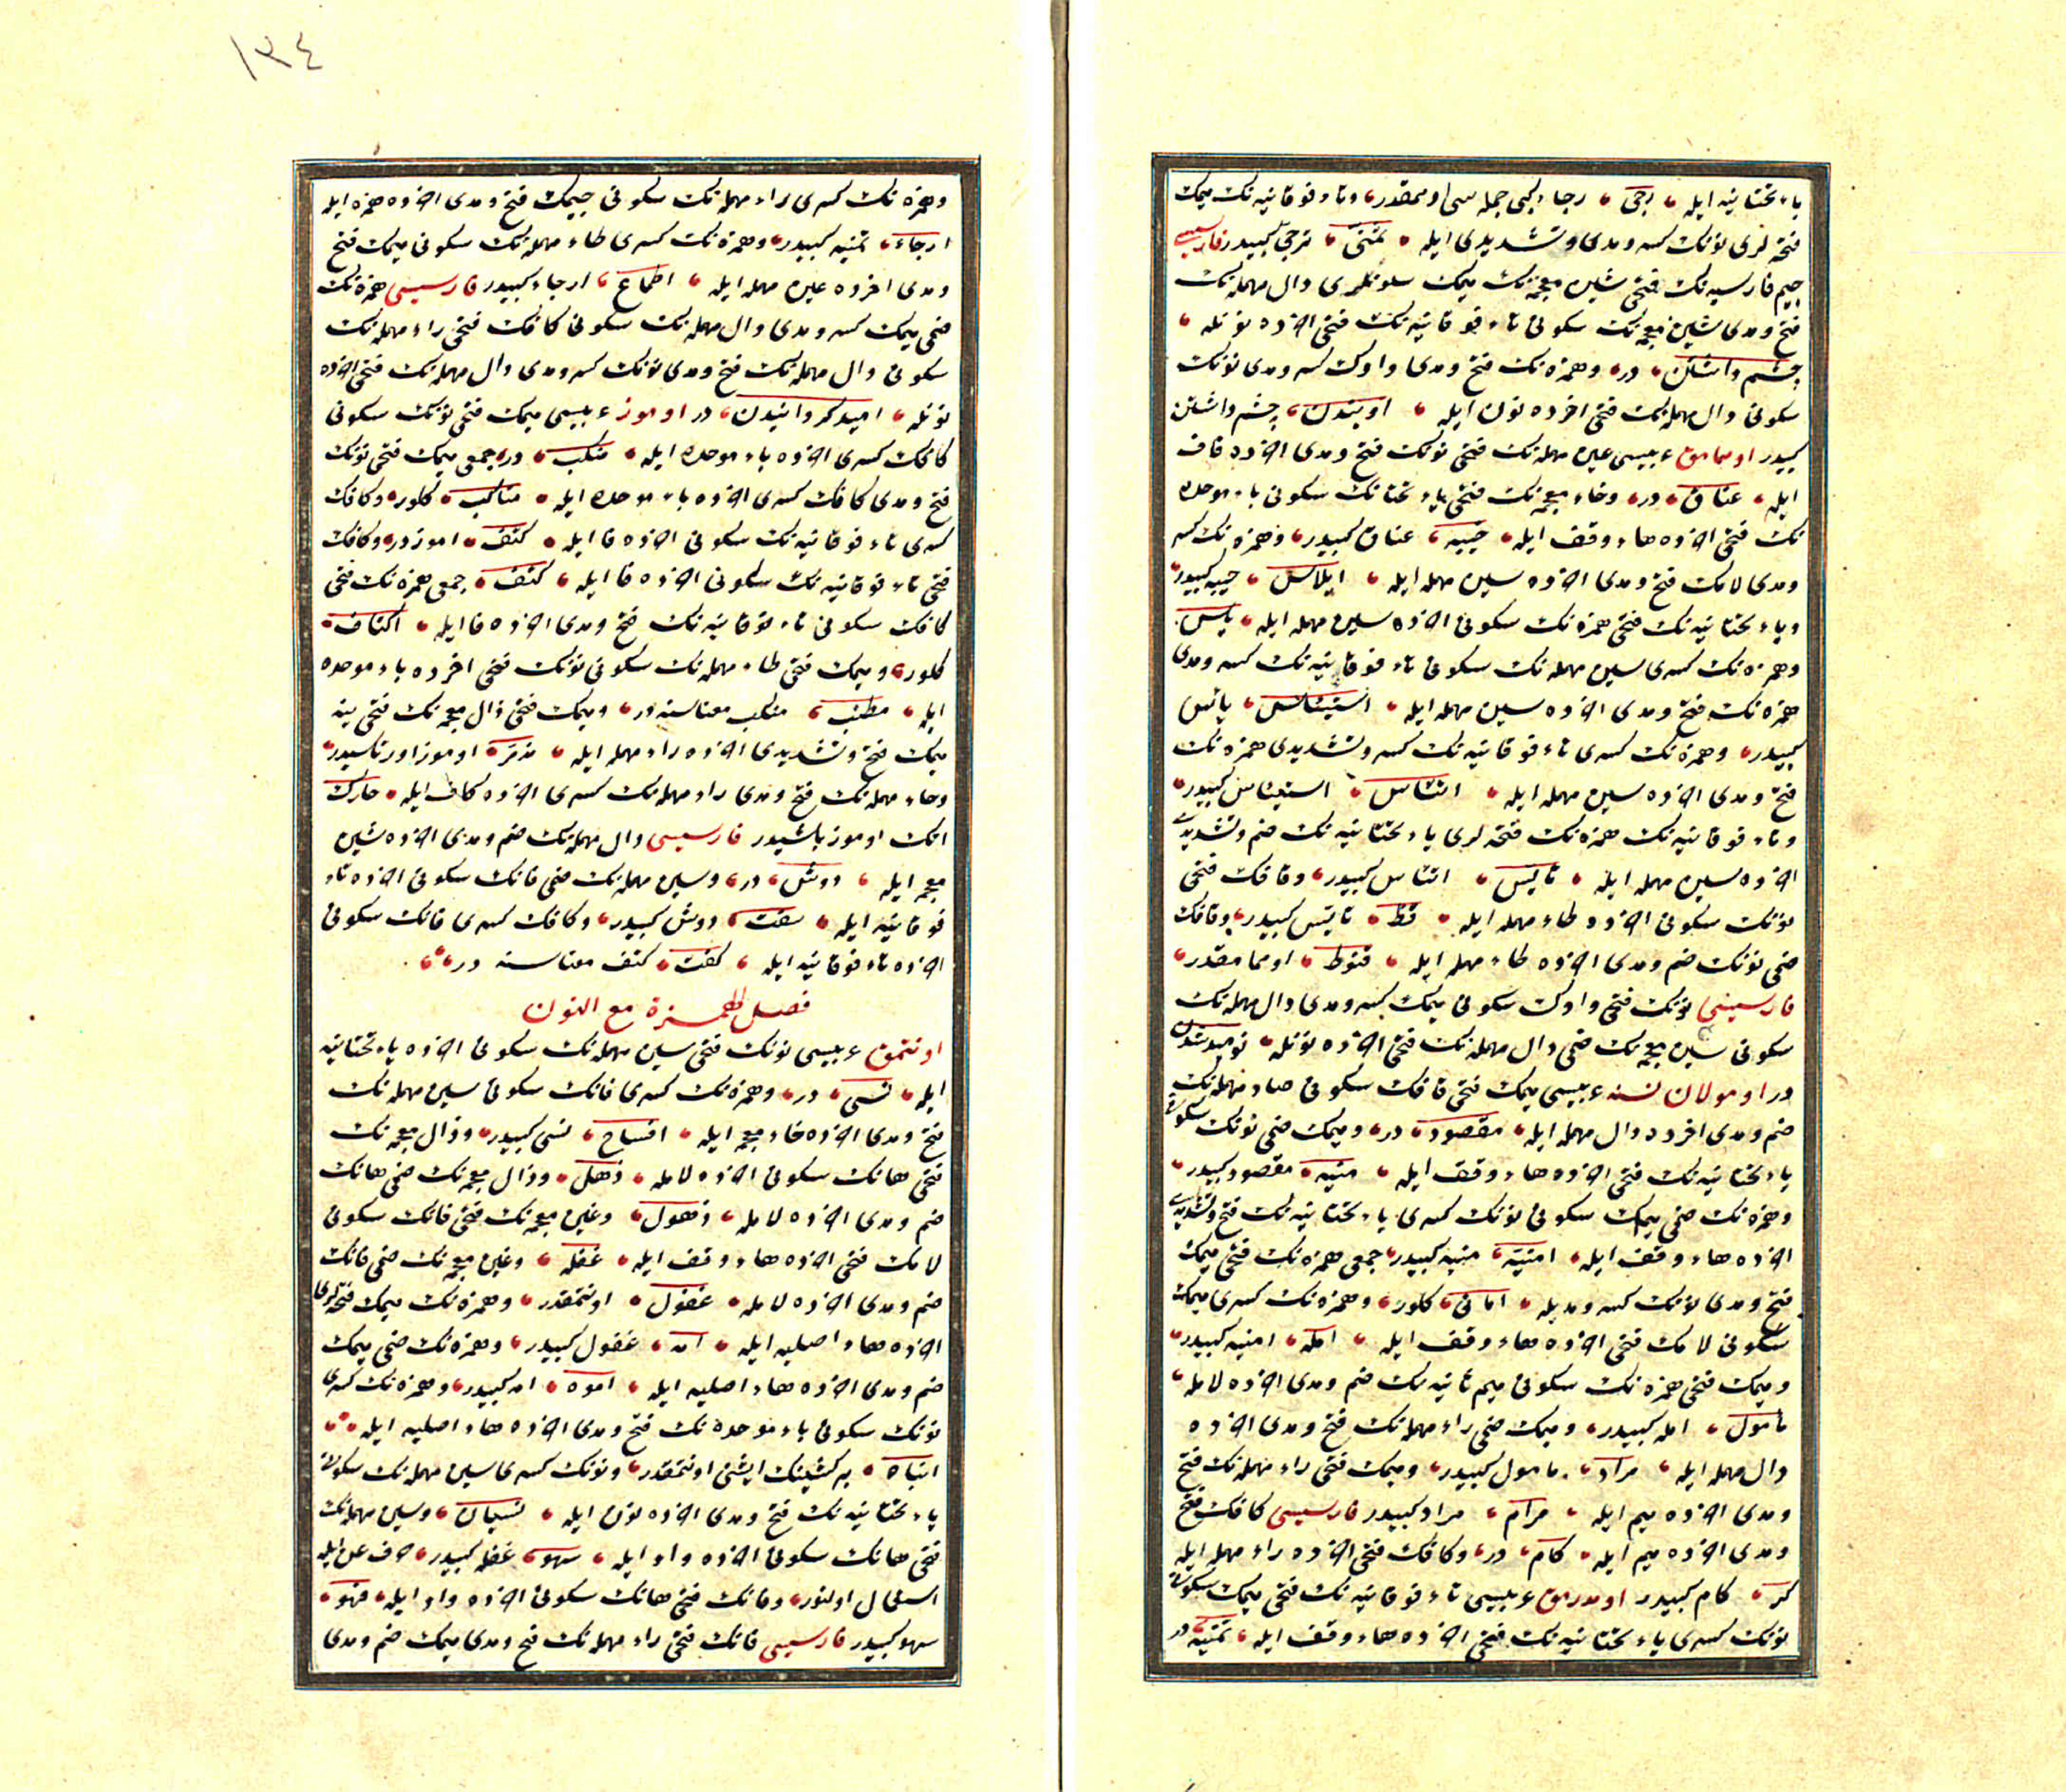 یاء تحتانیه ایله رجی رجاء کبی جمله سی اوممقدر وتاء فوقانیه نک میمک
فتحه لری نونک کسر ومدی وتشدیدی ایله تمنی ترجی کبیدر فارسیسی
جیم فارسیه نک فتحی شین معجمه نک میمک سکونلری دال مهمله نک
فتح ومدی شین معجمه نک سکونی تاء فوقانیه نک فتحی اخرده نونله
چشم داشتن در وهمزه نک فتح ومدی واوک کسر ومدی نونک
سکونی دال مهمله نک فتحی اخرده نون ایله اویندن چشم داشتن
کبیدر اومامق عربیسی عین مهمله نک فتحی نونک فتح ومدی اخرده قاف
ایله عناق در وخاء معجمه نک فتحی یاء تحتانک سکونی باء موحده
نک فتحی اخرده هاء وقف ایله خیبه عناق کبیدر وهمزه نک کسر
ومدی لامک فتح ومدی اخرده سین مهمله ایله ایلاس خیبه کبیدر
ویاء تحتانیه نک فتحی همزه نک سکونی اخرده سین مهمله ایله یأس
وهمزه نک کسری سین مهمله نک سکونی تاء فوقانیه نک کسر ومدی
همزه نک فتح ومدی اخرده سین مهمله ایله استیئاس یأس
کبیدر وهمزه نک کسری تاء فوقانیه نک کسر وتشدیدی همزه نک
فتح ومدی اخرده سین مهمله ایله اتئاس استیئاس کبیدر
وتاء فوقانیه نک همزه نک فتحه لری یاء تحتانیه نک ضم وتشدیدی
اخرده سین مهمله ایله تأیس اتئاس کبیدر وقافک فتحی
نونک سکونی اخرده طاء مهمله ایله قنط تأیس کبیدر وقافک
ضمی نونک ضم ومدی اخرده طاء مهمله ایله قنوط اومما مقدر
فارسیسی نونک فتحی واوک سکونی میمک کسر ومدی دال مهمله نک
سکونی شین معجمه نک ضمی دال مهمله نک فتحی اخرده نونله نومید شدن
در اومولان نسنه عربیسی میمک فتحی قافک سکونی صاد مهمله نک
ضم ومدی اخرده دال مهمله ایله مقصود در ومیمک ضمی نونک سکونی
یاء تحتانیه نک فتحی اخرده هاء وقف ایله منیه مقصود کبیدر
وهمزه نک ضمی میمک سکونی نونک کسری یاء تحتانیه نک فتح وتشدیدی
اخرده هاء وقف ایله امنیه منیه کبیدر جمعی همزه نک فتحی میمک
فتح ومدی نونک کسر ومدیله امانی کلور وهمزه نک کسری میمک
سکونی لامک فتحی اخرده هاء وقف ایله امله امنیه کبیدر
ومیمک فتحی همزه نک سکونی میم ثانیه نک ضم ومدی اخرده لامله
مأمول امله کبیدر ومیمک ضمی راء مهمله نک فتح ومدی اخرده
دال مهمله ایله مراد مأمول کبیدر ومیمک فتحی راء مهمله نک فتح
ومدی اخرده میم ایله مرام مراد کبیدر فارسیسی کافک فتح
ومدی اخرده میم ایله کام در وکافک فتحی اخرده راء مهمله ایله
کر کام کبیدر اومدرمق عربیسی تاء فوقانیه نک فتحی میمک سکونی
نونک کسری یاء تحتانیه نک فتحی اخرده هاء وقف ایله تمنیه در
١٣٤
وهمزه نک کسری راء مهمله نک سکونی جیمک فتح ومدی اخرده همزه ایله
ارجاء تمنیه کبیدر وهمزه نک کسری طاء مهمله نک سکونی میمک فتح
ومدی اخرده عین مهمله ایله اطماع ارجاء کبیدر فارسیسی همزه نک
ضمی میمک کسر ومدی دال مهمله نک سکونی کافک فتحی راء مهمله نک
سکونی دال مهمله نک فتح ومدی نونک کسر ومدی دال مهمله نک فتحی اخرده
نونله امیدکردانیدن در اوموز عربیسی میمک فتحی نونک سکونی
کافک کسری اخرده باء موحده ایله منکب در جمعی میمک فتحی نونک
فتح ومدی کافک کسری اخرده باء موحده ایله مناکب کلور وکافک
کسری تاء فوقانیه نک سکونی اخرده فا ایله کتف اموزدر وکافک
فتحی تاء فوقانیه نک سکونی اخرده فا ایله کتف جمعی همزه نک فتحی
کافک سکونی تاء فوقانیه نک فتح ومدی اخرده فا ایله اکتاف
کلور ومیمک فتحی طاء مهمله نک سکونی نونک فتحی اخرده باء موحده
ایله مطنب منکب معناسنه در ومیمک فتحی ذال معجمه نک فتحی ینه
میمک فتح وتشدیدی اخرده راء مهمله ایله مذمر اوموز اورتاسیدر
وحاء مهمله نک فتح ومدی راء مهمله نک کسری اخرده کاف ایله حارک
اتک اوموز باشیدر فارسیسی دال مهمله نک ضم ومدی اخرده شین
معجمه ایله دوش در وسین مهمله نک ضمی فانک سکونی اخرده تاء
فوقانیه ایله سفت دوش کبیدر وکافک کسری فانک سکونی
اخرده تاء فوقانیه ایله کفت کتف معناسنه در
فصل الهمزة مع النون
اونتمق عربیسی نونک فتحی سین مهمله نک سکونی اخرده یاء تحتانیه
ایله نسی در وهمزه نک کسری فانک سکونی سین مهمله نک
فتح ومدی اخرده خاء معجمه ایله افساخ نسی کبیدر وذال معجمه نک
فتحی هانک سکونی اخرده لامله ذهل وذال معجمه نک ضمی هانک
ضم ومدی اخرده لامله ذهول وغین معجمه نک فتحی فانک سکونی
لامک فتحی اخرده هاء وقف ایله غفله وغین معجمه نک ضمی فانک
ضم ومدی اخرده لامله غفول اونتمقدر وهمزه نک میمک فتحه لری
اخرده هاء اصلیه ایله امه غفول کبیدر وهمزه نک ضمی میمک
ضم ومدی اخرده هاء اصلیه ایله اموه امه کبیدر وهمزه نک کسری
نونک سکونی باء موحده نک فتح ومدی اخرده هاء اصلیه ایله
انباه بر کشینک ایشنی اونتمقدر ونونک کسری سین مهمله نک سکونی
یاء تحتانیه نک فتح ومدی اخرده نون ایله نسیان وسین مهمله نک
فتحی هانک سکونی اخرده واو ایله سهو غفله کبیدر حرف عن ایله
استعمال اولنور وفانک فتحی هانک سکونی اخرده واو ایله فهو
سهو کبیدر فارسیسی فانک فتحی راء مهمله نک فتح ومدی میمک ضم ومدی